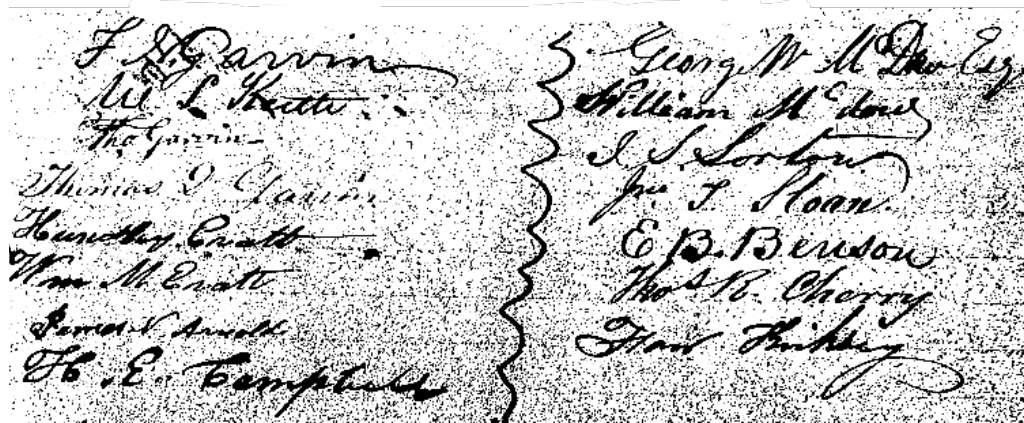 F. N. Garvin
L Keith
Tho Garvin
Thomas D Garvin
Hundley Evatt
Wm M Evatt
James N Arnold
H. E. Campbell
George W M Esq
William McDow
J. S. Lorton
Jno T Sloan
E B. Benson
Thos R. Cherry
Kirksey